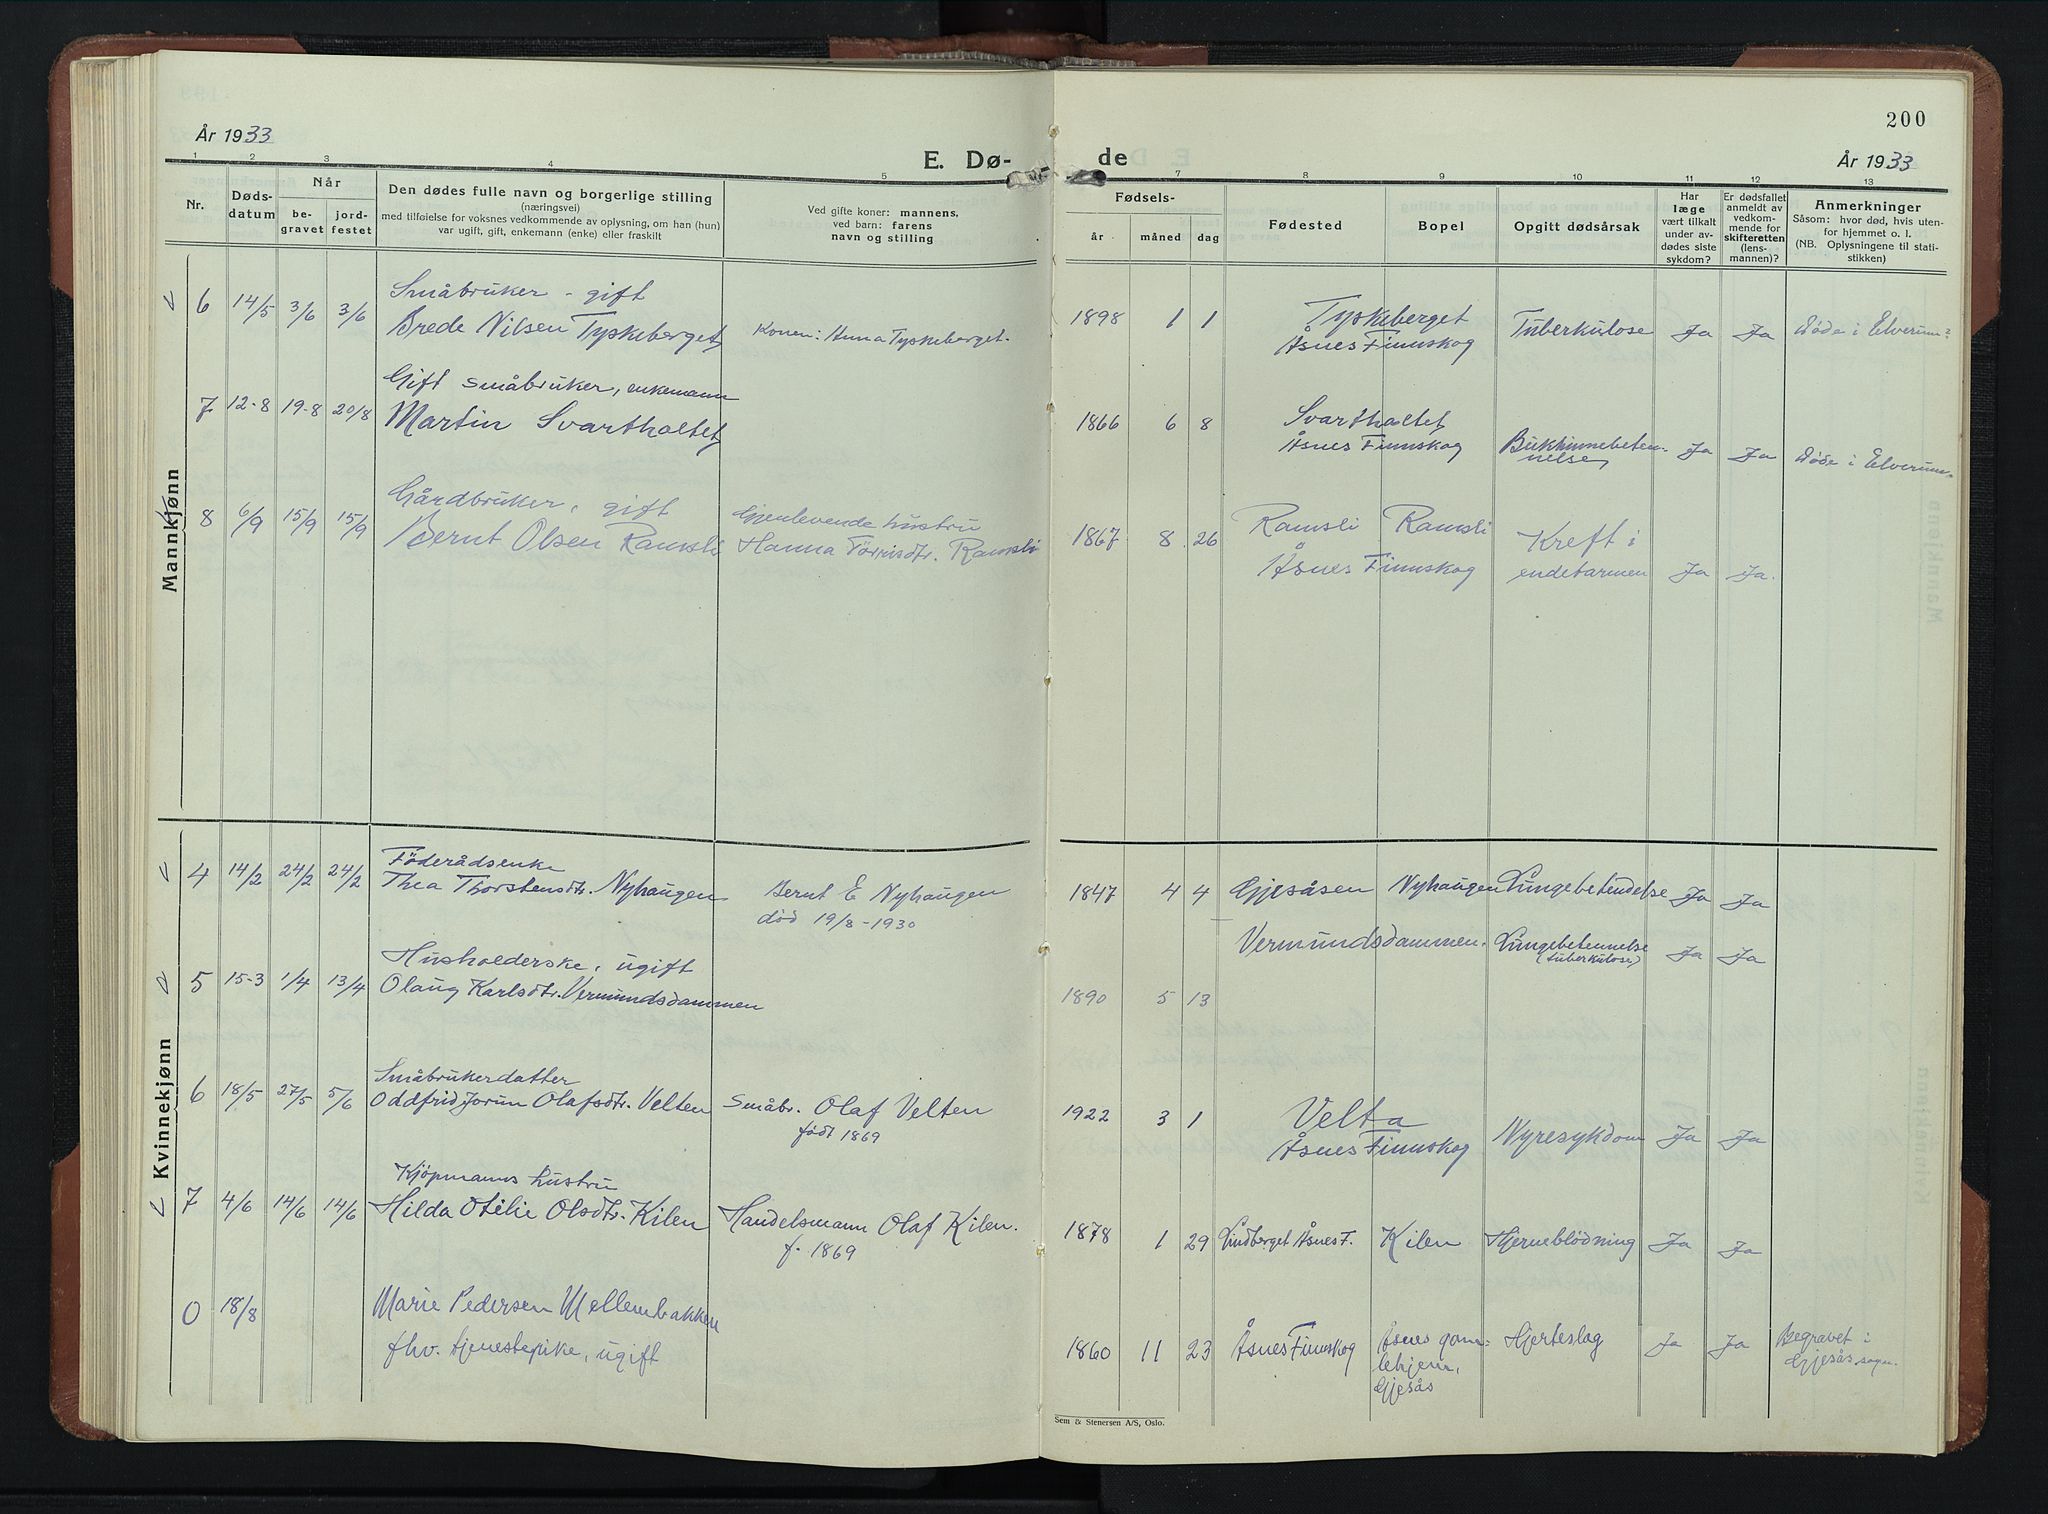 200
År 1933
E. Dø-
de
År 1933
1 2 3 4 5 7 8 9 10 11 12 13
Nr.
Døds-
datum
Når
be-
gravet
jord-
festet
Den dødes fulle navn og borgerlige stilling
(næringsvei)
med tilføielse for voksnes vedkommende av oplysning, om han (hun)
var ugift, gift, enkemann (enke) eller fraskilt
Ved gifte koner: mannens,
ved barn: farens
navn og stilling
Fødsels-
år måned dag
Fødested
Bopel
Opgitt dødsårsak
Har
læge
vært tilkalt
under av-
dødes siste
sykdom?
Er dødsfallet
anmeldt av
vedkom-
mende for
skifteretten
(lens-
mannen)?
Anmerkninger
Såsom: hvor død, hvis uten-
for hjemmet o. l.
(NB. Oplysningene til stati-
stikken)
Mannkjønn
Småbruker - gift
6 14/5 3/6 3/6 Brede Nilsen Tyskeberget Konen: Anna Tyskeberget. 1898 1 1 Tyskeberget Tuberkulose Ja Ja Døde i Elverum
Åsnes Finnskog
Gift småbruker, enkemann
7 12-8 19-8 20/8 Martin Svartholtet 1866 6 8 Svartholtet Bukhinnebeten- Ja Ja Døde i Elverum
Åsnes Finnskog nelse
Gårdbruker, gift Gjenlevende hustru
8 6/9 15/9 15/9 Bernt Olsen Ramsli Hanna Törrisdtr. Ramsli 1867 8 26 Ramsli Ramsli Kreft i
Åsnes Finnskog endetarmen Ja Ja.
Kvinnekjønn
Föderådsenke
4 14/2 24/2 24/2 Thea Thorstensdtr. Nyhaugen Bernt E Nyhaugen 1847 4 4 Gjesåsen Nyhaugen Lungebetendelse Ja Ja
död 19/8-1930
Husholderske, ugift Vermundsdammen. Lungebetennelse Ja Ja
(tuberkulose)
5 15-3 1/4 13/4 Olaug Karlsdtr. Vermundsdammen 1890 5 13
Småbrukerdatter
6 18/5 27/5 5/6 Oddfrid Jorun Olafsdtr. Velten Småbr. Olaf Velten 1922 3 1 Velta Nyresykdom Ja Ja
födt 1869 Åsnes Finnskog
Kjöpmanns hustru
7 4/6 14/6 14/6 Hilda Otilie Olsdtr. Kilen Handelsmann Olaf Kilen. 1878 1 29 Lindberget Åsnes F. Kilen Hjerneblödning Ja Ja
f. 1869
0 18/8 Marie Pedersen Mellembakken
fhv. tjenestepike, ugift 1860 11 23 Åsnes Finnskog Åsnes gam- Hjerteslag Ja Ja Begravet i
lehjem, Gjesås sogn.
Gjesås
Sem & Stenersen A/S, Oslo.